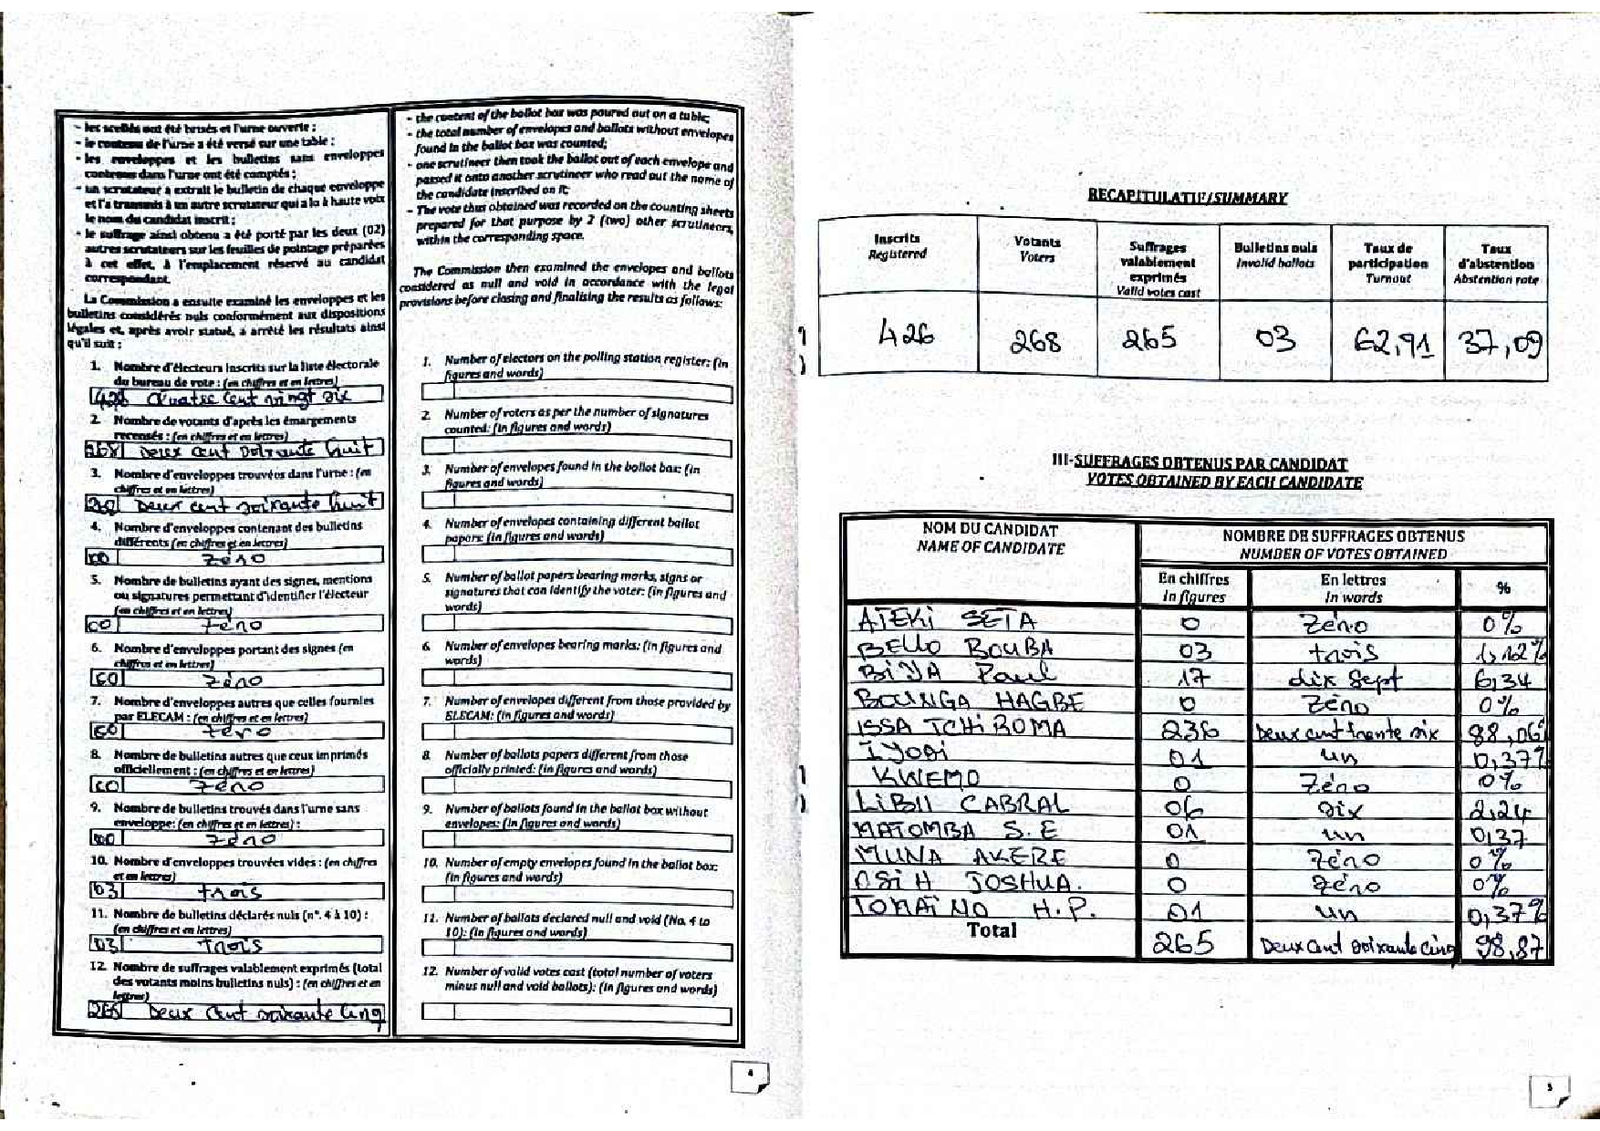 - les scellés ont été brisés et l'urne ouverte ;
- le contenu de l'urne a été versé sur une table ;
- les enveloppes et les bulletins sans enveloppes
contenus dans l'urne ont été comptés ;
- un scrutateur a extrait le bulletin de chaque enveloppe
et l'a transmis à un autre scrutateur qui a lu à haute voix
le nom du candidat inscrit ;
- le suffrage ainsi obtenu a été porté par les deux (02)
autres scrutateurs sur les feuilles de pointage préparées
à cet effet, à l'emplacement réservé au candidat
correspondant.
La Commission a ensuite examiné les enveloppes et les
bulletins considérés nuls conformément aux dispositions
légales et, après avoir statué, a arrêté les résultats ainsi
qu'il suit :
1. Nombre d'électeurs inscrits sur la liste électorale
du bureau de vote : (en chiffres et en lettres)
426 Quatre cent vingt six
2. Nombre de votants d'après les émargements
recensés : (en chiffres et en lettres)
268 Deux cent soixante huit
3. Nombre d'enveloppes trouvées dans l'urne : (en
chiffres et en lettres)
Deux cent soixante huit
4. Nombre d'enveloppes contenant des bulletins
différents (en chiffres et en lettres)
00 Zéro
5. Nombre de bulletins ayant des signes, mentions
ou signatures permettant d'identifier l'électeur
(en chiffres et en lettres)
00 Zéro
6. Nombre d'enveloppes portant des signes (en
chiffres et en lettres)
00 Zéro
7. Nombre d'enveloppes autres que celles fournies
par ELECAM : (en chiffres et en lettres)
00 Zéro
8. Nombre de bulletins autres que ceux imprimés
officiellement : (en chiffres et en lettres)
00 Zéro
9. Nombre de bulletins trouvés dans l'urne sans
enveloppe: (en chiffres et en lettres) :
00 Zéro
10. Nombre d'enveloppes trouvées vides : (en chiffres
et en lettres)
03 trois
11. Nombre de bulletins déclarés nuls (n°. 4 à 10) :
(en chiffres et en lettres)
03 trois
12. Nombre de suffrages valablement exprimés (total
des votants moins bulletins nuls) : (en chiffres et en
lettres)
265 Deux cent soixante cinq
- the content of the ballot box was poured out on a table;
- the total number of envelopes and ballots without envelopes
found in the ballot box was counted;
- one scrutineer then took the ballot out of each envelope and
passed it onto another scrutineer who read out the name of
the candidate inscribed on it;
- The vote thus obtained was recorded on the counting sheets
prepared for that purpose by 2 (two) other scrutineers,
within the corresponding space.
The Commission then examined the envelopes and ballots
considered as null and void in accordance with the legal
provisions before closing and finalising the results as follows:
1. Number of electors on the polling station register: (in
figures and words)
2. Number of voters as per the number of signatures
counted: (in figures and words)
3. Number of envelopes found in the ballot box: (in
figures and words)
4. Number of envelopes containing different ballot
papers: (in figures and words)
5. Number of ballot papers bearing marks, signs or
signatures that can identify the voter: (in figures and
words)
6. Number of envelopes bearing marks: (in figures and
words)
7. Number of envelopes different from those provided by
ELECAM: (in figures and words)
8. Number of ballots papers different from those
officially printed: (in figures and words)
9. Number of ballots found in the ballot box without
envelopes: (in figures and words)
10. Number of empty envelopes found in the ballot box:
(in figures and words)
11. Number of ballots declared null and void (No. 4 to
10): (in figures and words)
12. Number of valid votes cast (total number of voters
minus null and void ballots): (in figures and words)
4
RECAPITULATIF/SUMMARY
Inscrits Registered | Votants Voters | Suffrages valablement exprimés Valid votes cast | Bulletins nuls Invalid ballots | Taux de participation Turnout | Taux d'abstention Abstention rate
426 268 265 03 62,91 37,09
III-SUFFRAGES OBTENUS PAR CANDIDAT
VOTES OBTAINED BY EACH CANDIDATE
NOM DU CANDIDAT NOMBRE DE SUFFRAGES OBTENUS
NAME OF CANDIDATE NUMBER OF VOTES OBTAINED
En chiffres En lettres %
In figures In words
ATEKI SETA 0 Zéro 0%
BELLO BOUBA 03 trois 1,12%
BIYA Paul 17 dix sept 6,34
BOUNGA HAGBE 0 Zéro 0%
ISSA TCHIROMA 236 Deux cent trente six 88,06
IYODI 01 un 0,37%
KWEMO 0 Zéro 0%
LIBII CABRAL 06 six 2,24
MATOMBA S.E 01 un 0,37
MUNA AKERE 0 Zéro 0%
OSIH JOSHUA. 0 Zéro 0%
TOMAINO H.P. 01 un 0,37%
Total 265 Deux cent soixante cinq 98,87
5